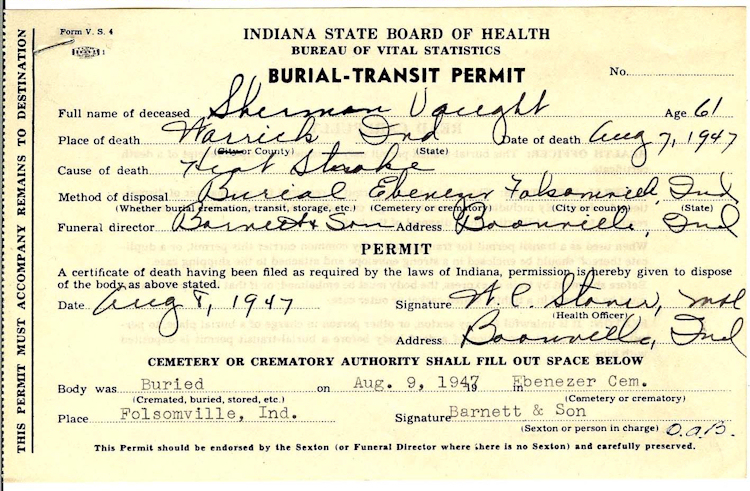 Form V. S. 4
INDIANA STATE BOARD OF HEALTH
BUREAU OF VITAL STATISTICS
BURIAL-TRANSIT PERMIT
No.
Full name of deceased Sherman Vaught Age 61
Place of death Warrick Ind Date of death Aug 7, 1947
(City or County) (State)
Cause of death Heat Stroke
Method of disposal Burial Ebenezer Folsomville, Ind
(Whether burial, cremation, transit, storage, etc.) (Cemetery or crematory) (City or county) (State)
Funeral director Barnett & Son Address Boonville, Ind
PERMIT
A certificate of death having been filed as required by the laws of Indiana, permission is hereby given to dispose
of the body as above stated.
Date Aug 8, 1947 Signature W. C. Stover, MD
(Health Officer)
Address Boonville, Ind
CEMETERY OR CREMATORY AUTHORITY SHALL FILL OUT SPACE BELOW
Body was Buried on Aug. 9, 1947 in Ebenezer Cem.
(Cremated, buried, stored, etc.) (Cemetery or crematory)
Place Folsomville, Ind. Signature Barnett & Son
(Sexton or person in charge) O.a.B.
This Permit should be endorsed by the Sexton (or Funeral Director where there is no Sexton) and carefully preserved.
THIS PERMIT MUST ACCOMPANY REMAINS TO DESTINATION